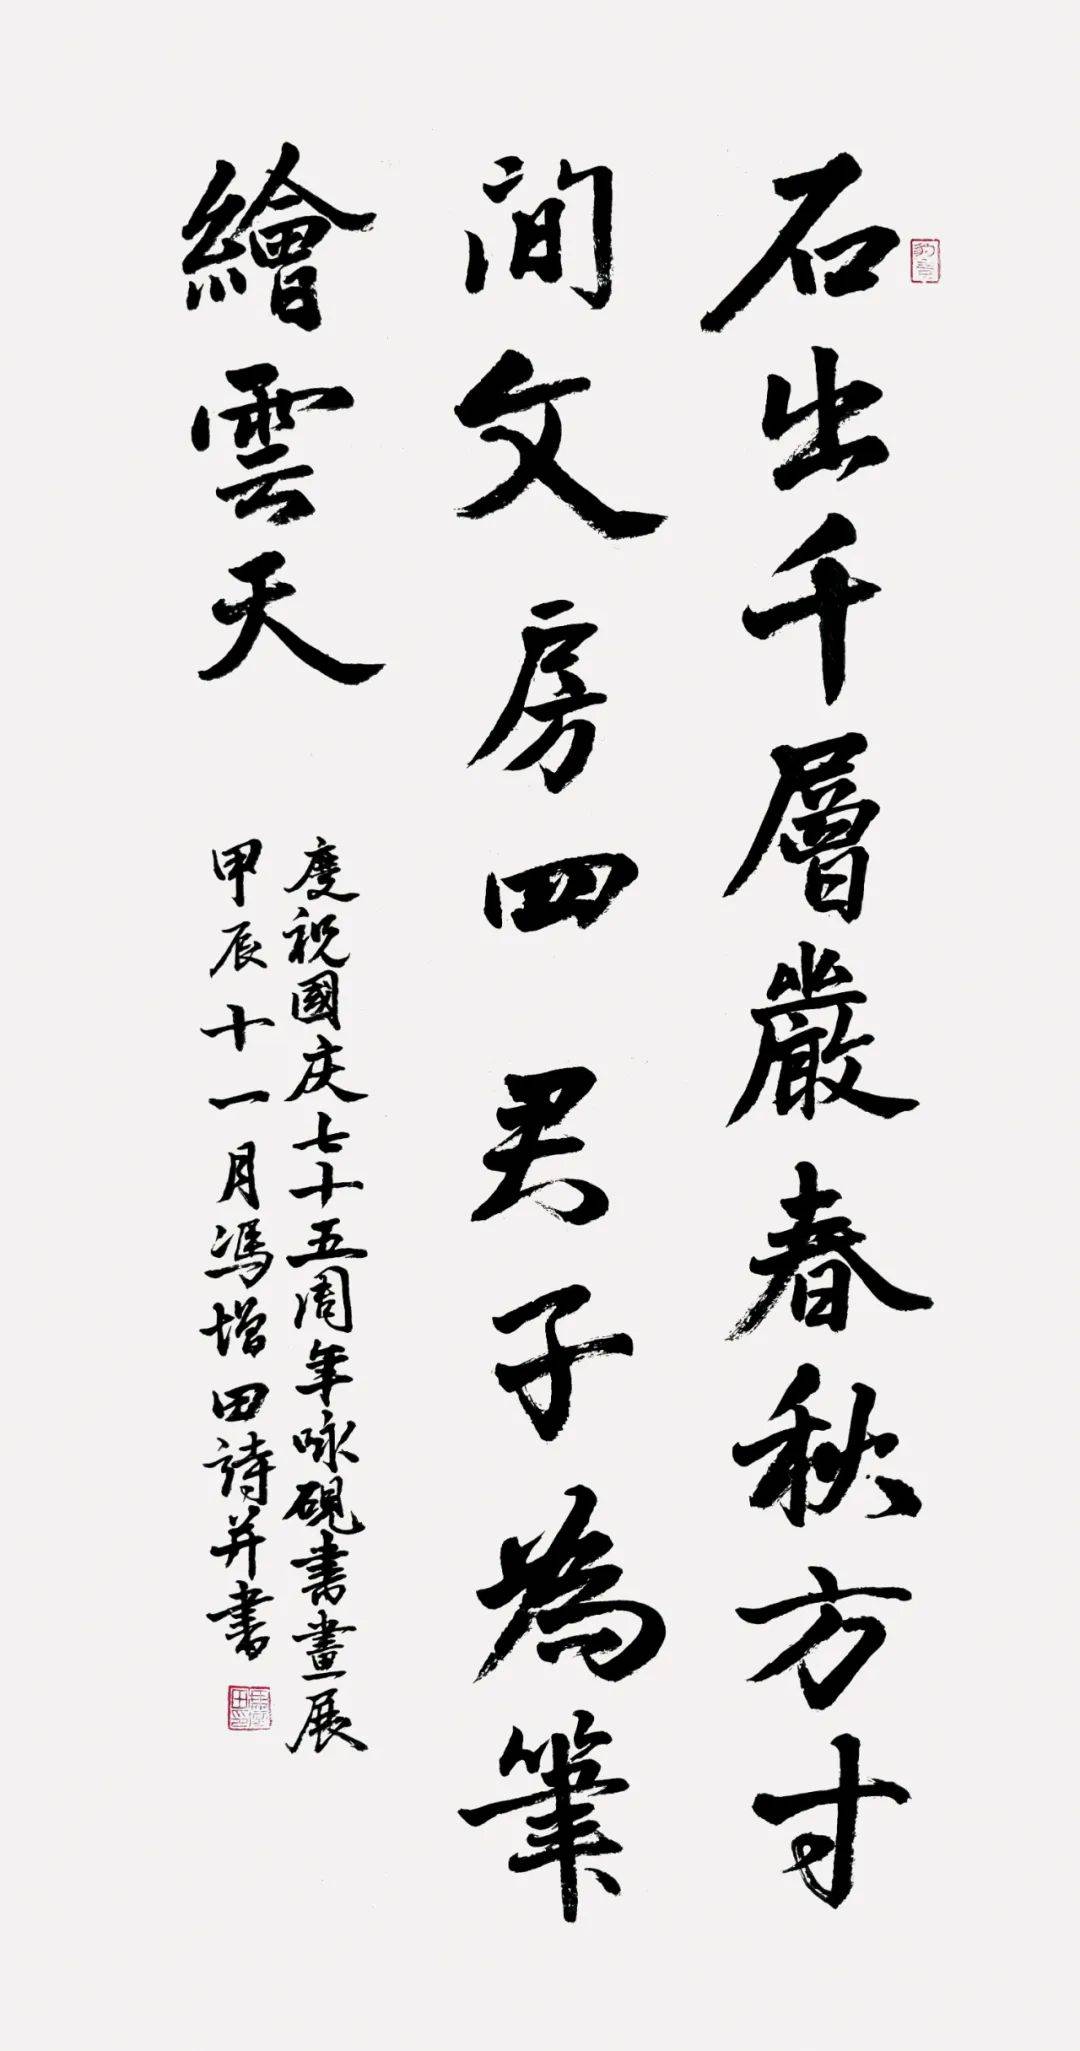 石出千層巖春秋方寸
间文房四君子為筆
繪雲天
慶祝國庆七十五周年咏硯書畫展
甲辰十一月馮增田詩并書